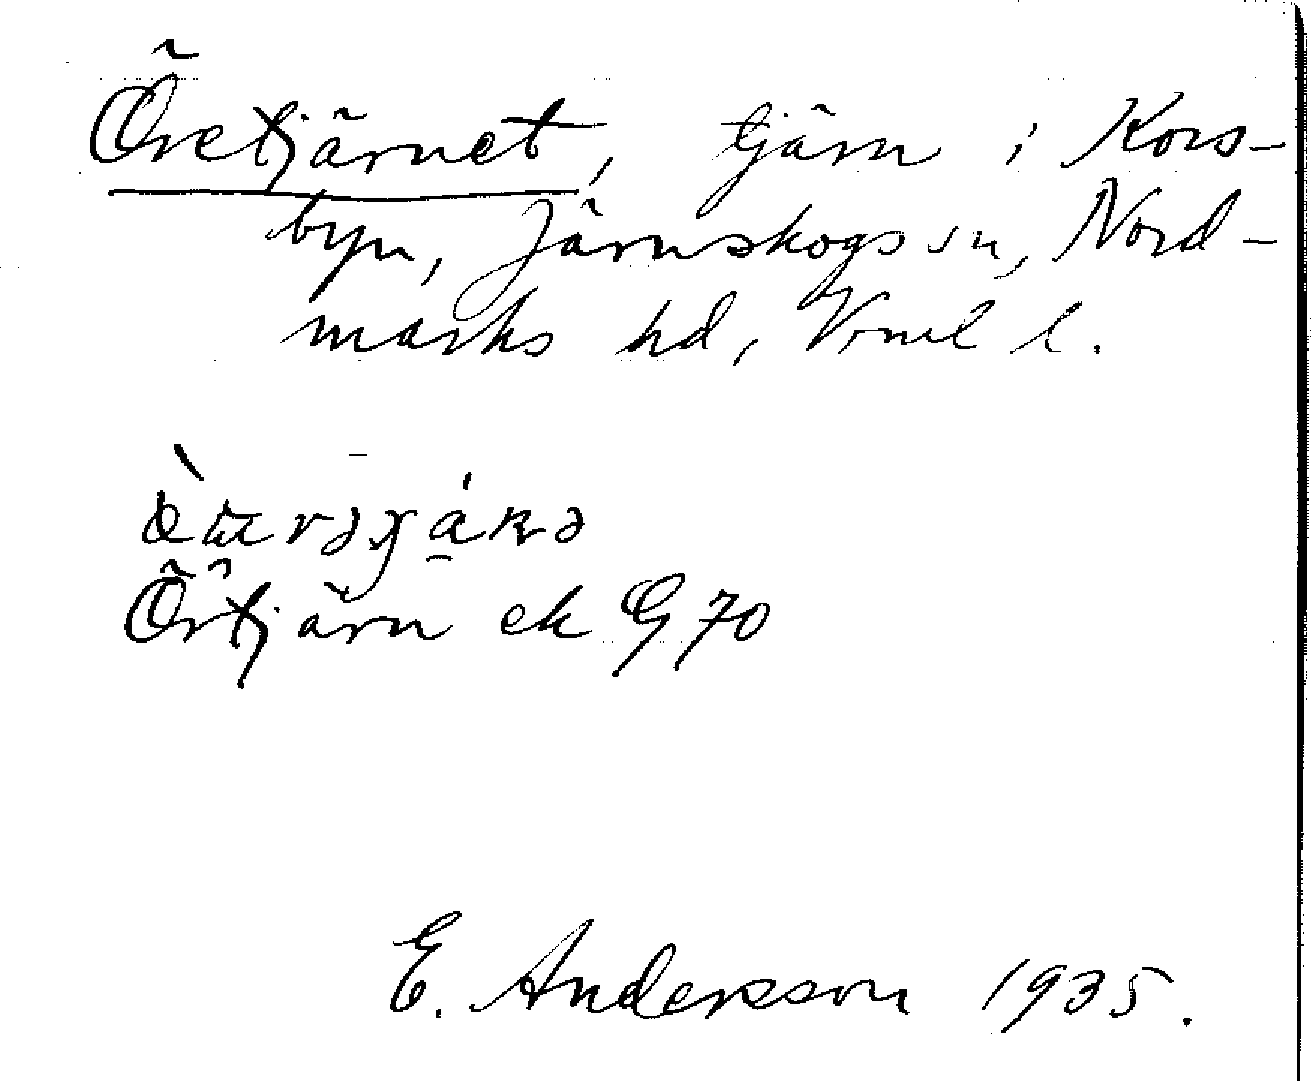 Öretjärnet, tjärn i Kors-
byn, Järnskogs sn, Nord-
marks hd, Vrml l.
Örtjärn ek G 70
E. Andersson 1935.